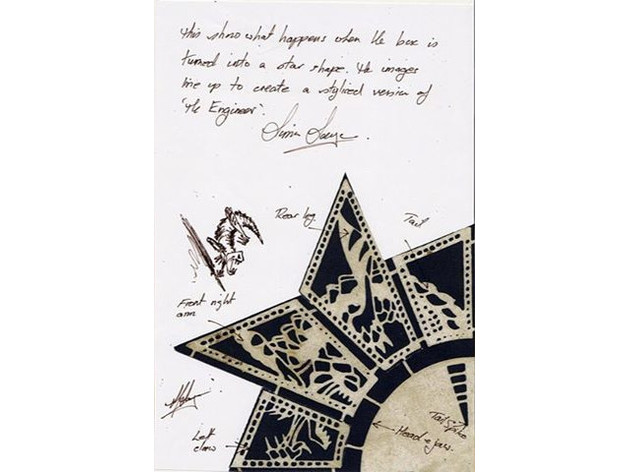 This show what happens when the box is
turned into a star shape. The images
line up to create a stylized version of
'The Engineer'.
Rear leg.
Tail
Front right
arm
Left
claw
Head & jaws.
Tail Spike